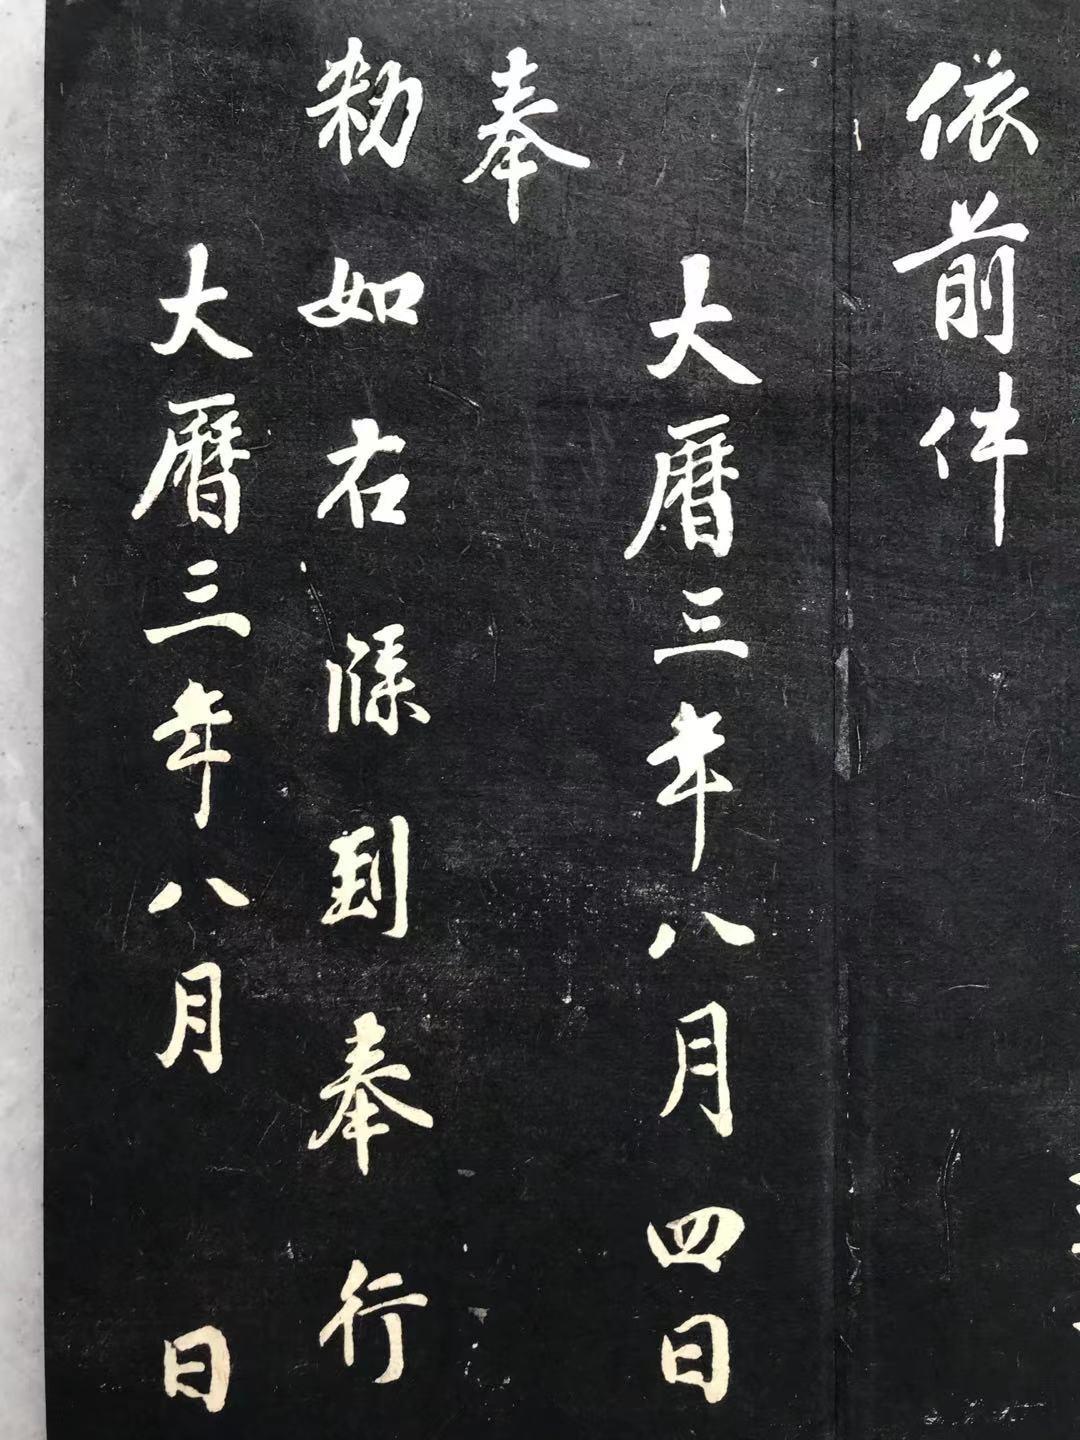 依前件
大曆三年八月四日
奉
勑如右牒到奉行
大曆三年八月 日